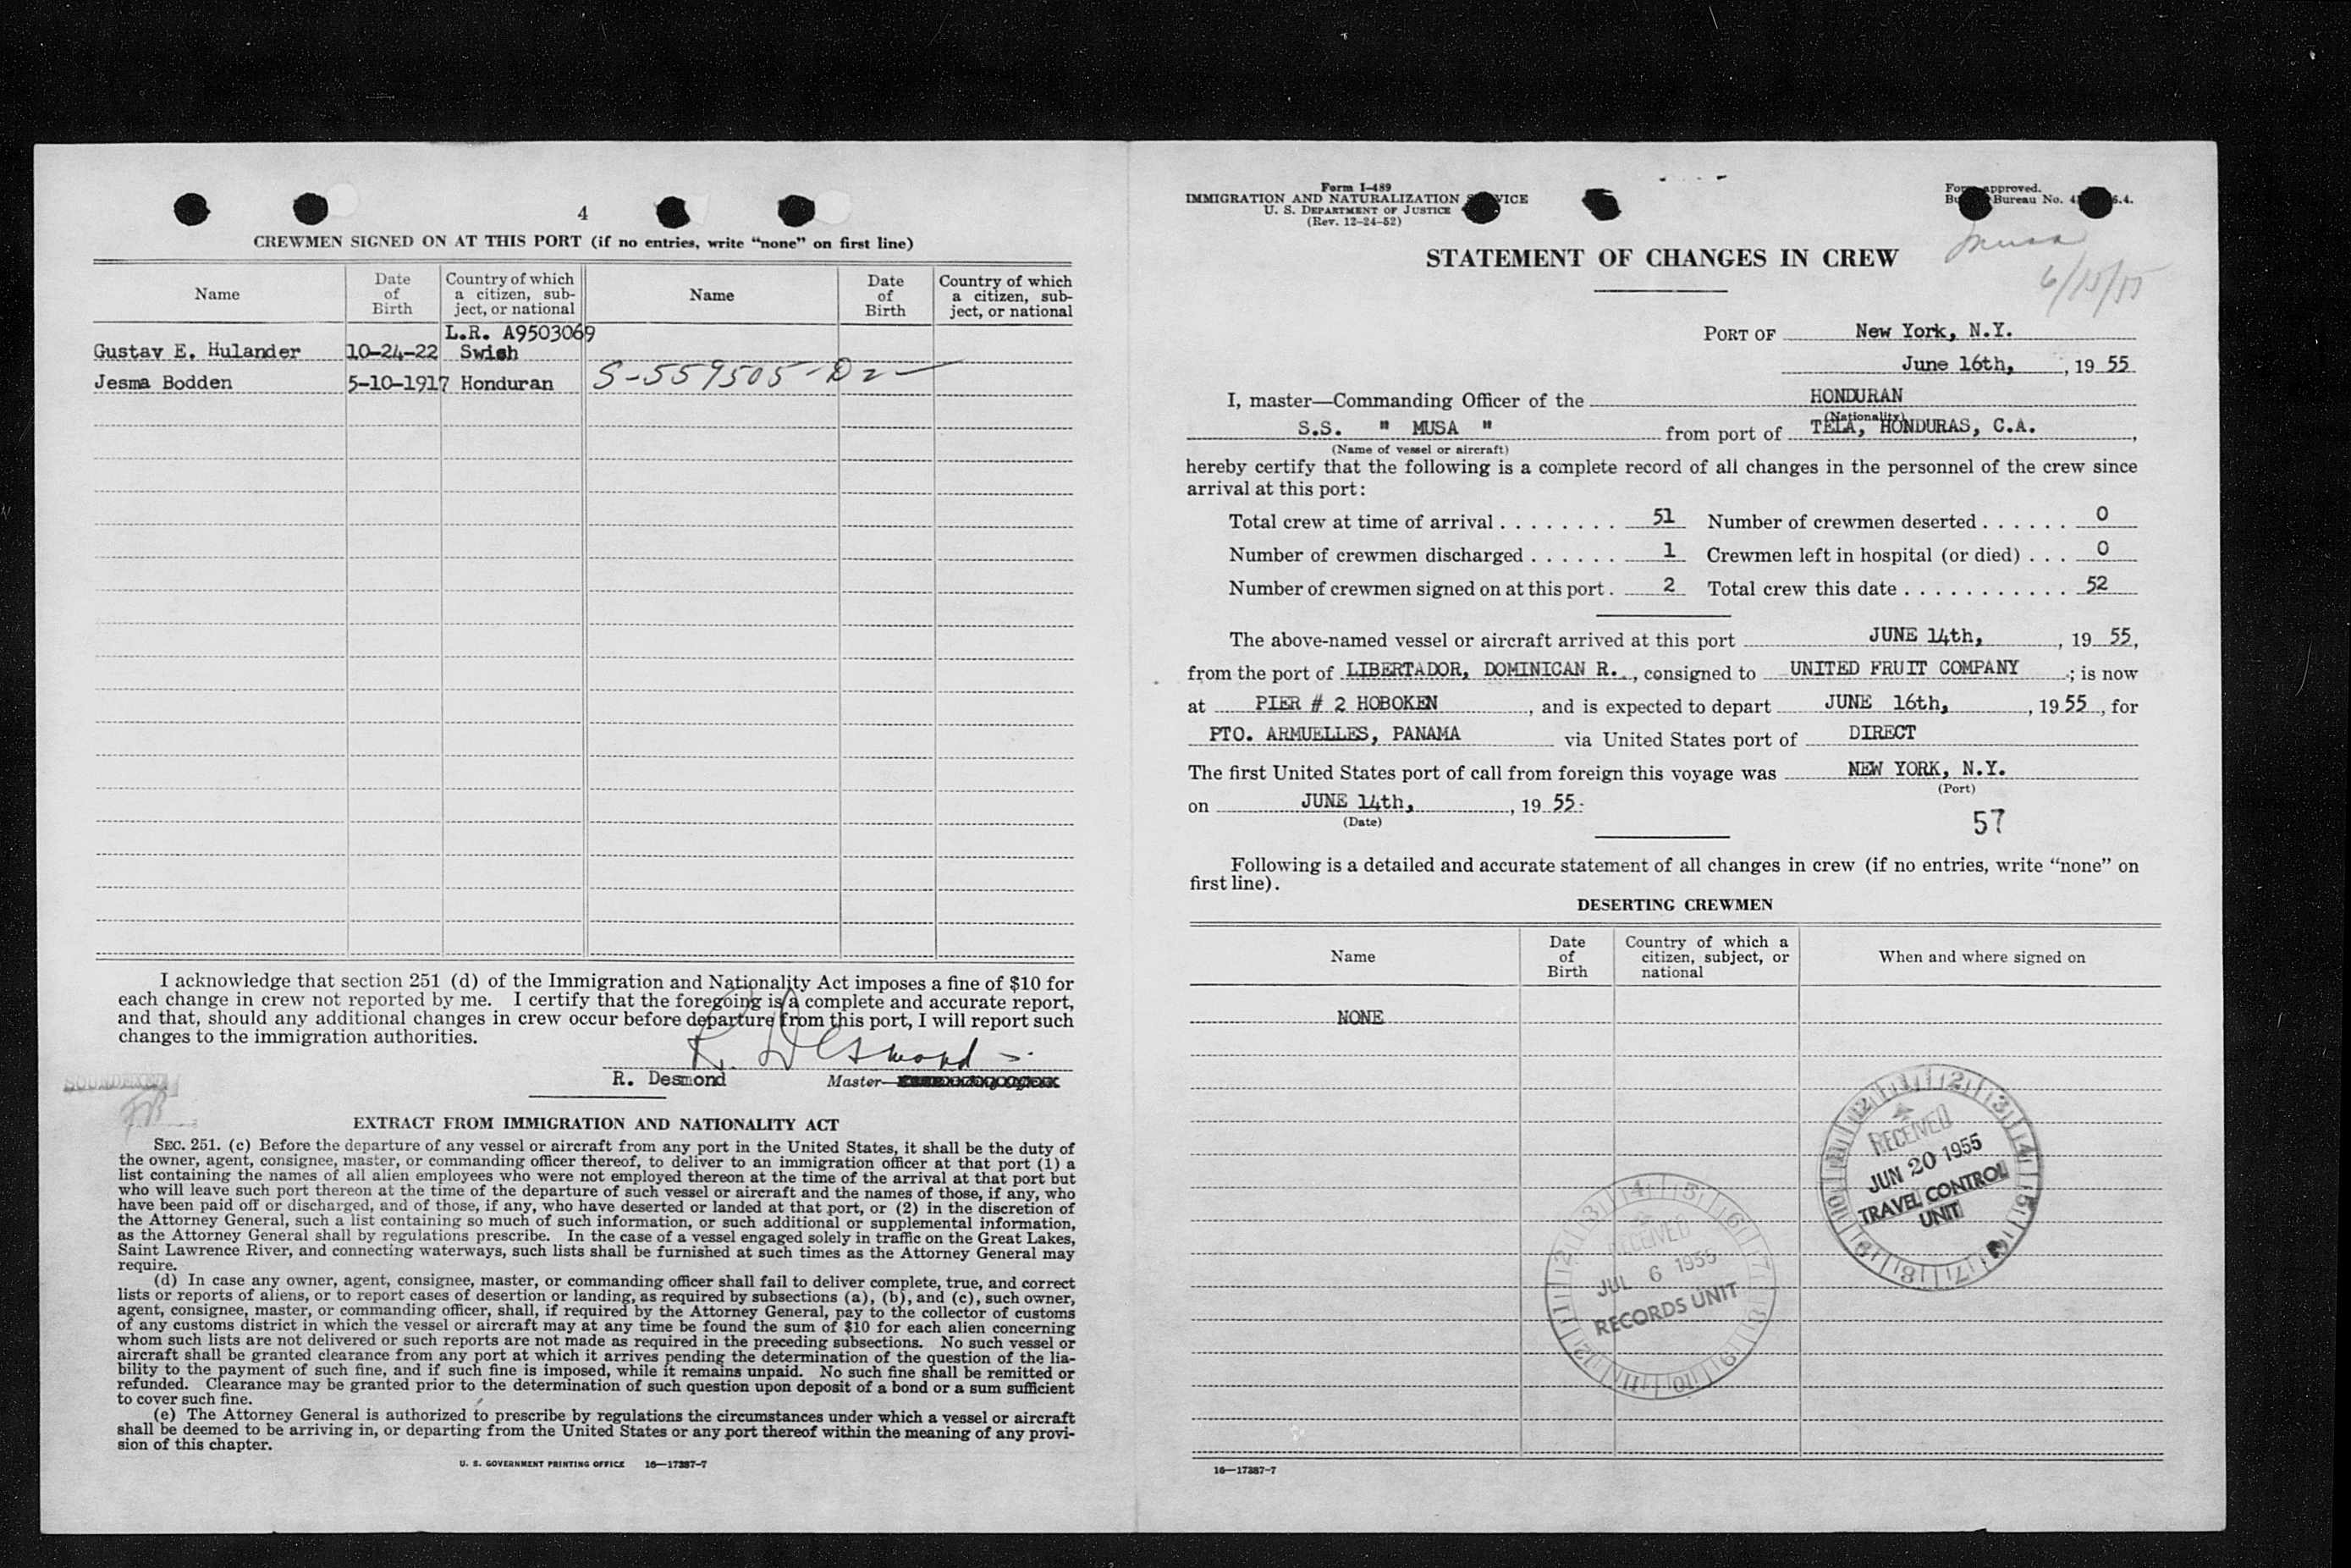 4
CREWMEN SIGNED ON AT THIS PORT (if no entries, write “none” on first line)
Name
Date of Birth
Country of which a citizen, sub-ject, or national
Name
Date of Birth
Country of which a citizen, sub-ject, or national
L.R. A9503069
Gustav E. Hulander 10-24-22 Swish
Jesma Bodden 5-10-1917 Honduran S-559505-D2-
I acknowledge that section 251 (d) of the Immigration and Nationality Act imposes a fine of $10 for
each change in crew not reported by me. I certify that the foregoing is a complete and accurate report,
and that, should any additional changes in crew occur before departure from this port, I will report such
changes to the immigration authorities.
R. Desmond
R. Desmond Master—
EXTRACT FROM IMMIGRATION AND NATIONALITY ACT
SEC. 251. (c) Before the departure of any vessel or aircraft from any port in the United States, it shall be the duty of
the owner, agent, consignee, master, or commanding officer thereof, to deliver to an immigration officer at that port (1) a
list containing the names of all alien employees who were not employed thereon at the time of the arrival at that port but
who will leave such port thereon at the time of the departure of such vessel or aircraft and the names of those, if any, who
have been paid off or discharged, and of those, if any, who have deserted or landed at that port, or (2) in the discretion of
the Attorney General, such a list containing so much of such information, or such additional or supplemental information,
as the Attorney General shall by regulations prescribe. In the case of a vessel engaged solely in traffic on the Great Lakes,
Saint Lawrence River, and connecting waterways, such lists shall be furnished at such times as the Attorney General may
require.
(d) In case any owner, agent, consignee, master, or commanding officer shall fail to deliver complete, true, and correct
lists or reports of aliens, or to report cases of desertion or landing, as required by subsections (a), (b), and (c), such owner,
agent, consignee, master, or commanding officer, shall, if required by the Attorney General, pay to the collector of customs
of any customs district in which the vessel or aircraft may at any time be found the sum of $10 for each alien concerning
whom such lists are not delivered or such reports are not made as required in the preceding subsections. No such vessel or
aircraft shall be granted clearance from any port at which it arrives pending the determination of the question of the lia-
bility to the payment of such fine, and if such fine is imposed, while it remains unpaid. No such fine shall be remitted or
refunded. Clearance may be granted prior to the determination of such question upon deposit of a bond or a sum sufficient
to cover such fine.
(e) The Attorney General is authorized to prescribe by regulations the circumstances under which a vessel or aircraft
shall be deemed to be arriving in, or departing from the United States or any port thereof within the meaning of any provi-
sion of this chapter.
U. S. GOVERNMENT PRINTING OFFICE 16—17387-7
Form I-489
IMMIGRATION AND NATURALIZATION VICE
U. S. DEPARTMENT OF JUSTICE
(Rev. 12-24-52)
approved.
Bureau No.
STATEMENT OF CHANGES IN CREW
Musa
6/15/55
PORT OF New York, N.Y.
June 16th, , 19 55
I, master—Commanding Officer of the HONDURAN
(Nationality)
S.S. " MUSA " from port of TELA, HONDURAS, C.A.,
(Name of vessel or aircraft)
hereby certify that the following is a complete record of all changes in the personnel of the crew since
arrival at this port:
Total crew at time of arrival . . . . . . . . 51 Number of crewmen deserted . . . . . . 0
Number of crewmen discharged . . . . . . 1 Crewmen left in hospital (or died) . . . 0
Number of crewmen signed on at this port . 2 Total crew this date . . . . . . . . . . . 52
The above-named vessel or aircraft arrived at this port JUNE 14th, , 19 55,
from the port of LIBERTADOR, DOMINICAN R. , consigned to UNITED FRUIT COMPANY ; is now
at PIER # 2 HOBOKEN , and is expected to depart JUNE 16th, , 19 55 , for
PTO. ARMUELLES, PANAMA via United States port of DIRECT
The first United States port of call from foreign this voyage was NEW YORK, N.Y.
(Port)
on JUNE 14th, , 19 55.
(Date)
57
Following is a detailed and accurate statement of all changes in crew (if no entries, write “none” on
first line).
DESERTING CREWMEN
Name
Date of Birth
Country of which a citizen, subject, or national
When and where signed on
NONE
RECEIVED
JUN 20 1955
TRAVEL CONTROL
UNIT
RECEIVED
JUL 6 1955
RECORDS UNIT
16—17387-7